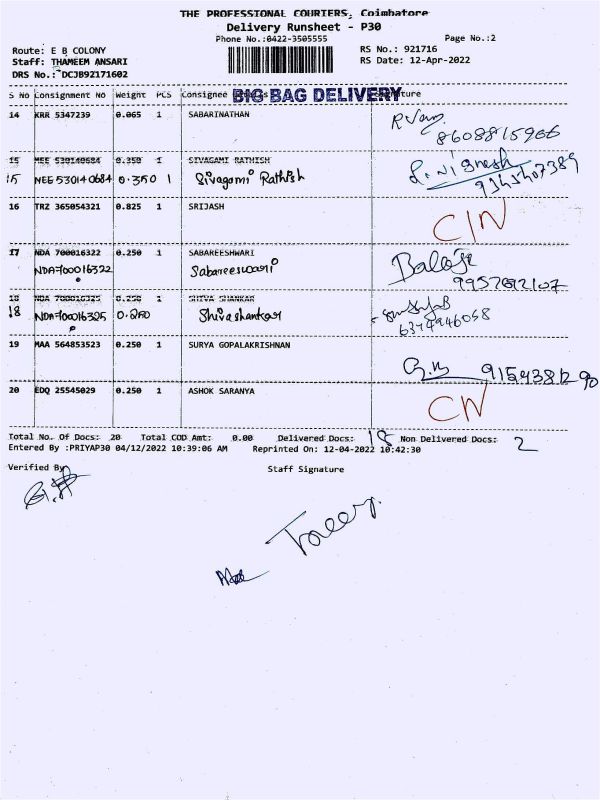 THE PROFESSIONAL COURIERS, Coimbatore
Delivery Runsheet - P30
Phone No.:0422-3505555
Page No.:2
Route: E B COLONY
RS No.: 921716
Staff: THAMEEM ANSARI
RS Date: 12-Apr-2022
DRS No.: DCJB92171602
S No Consignment NO Weight PCS Consignee
BIG BAG DELIVERY
14 KRR 5347239 0.065 1 SABARINATHAN
8608815966
15 MEE 530140684 0.350 1 SIVAGAMI RATHISH
15 NEE 530140684 0.350 1 Sivagami Rathish
16 TRZ 365054321 0.825 1 SRIJASH
C/N
17 NDA 700016322 0.250 1 SABAREESHWARI
NDA700016322 Sabareeswari
Balaji
18 NDA 700016325 0.250 1 SHIVA SHANKAR
18 NDA700016325 0.250 Shivashankar
6374946058
19 MAA 564853523 0.250 1 SURYA GOPALAKRISHNAN
20 EDQ 25545029 0.250 1 ASHOK SARANYA
CN
Total No. Of Docs: 20 Total COD Amt: 0.00 Delivered Docs: 18 Non Delivered Docs: 2
Entered By :PRIYAP30 04/12/2022 10:39:06 AM Reprinted On: 12-04-2022 10:42:30
Verified By
Staff Signature